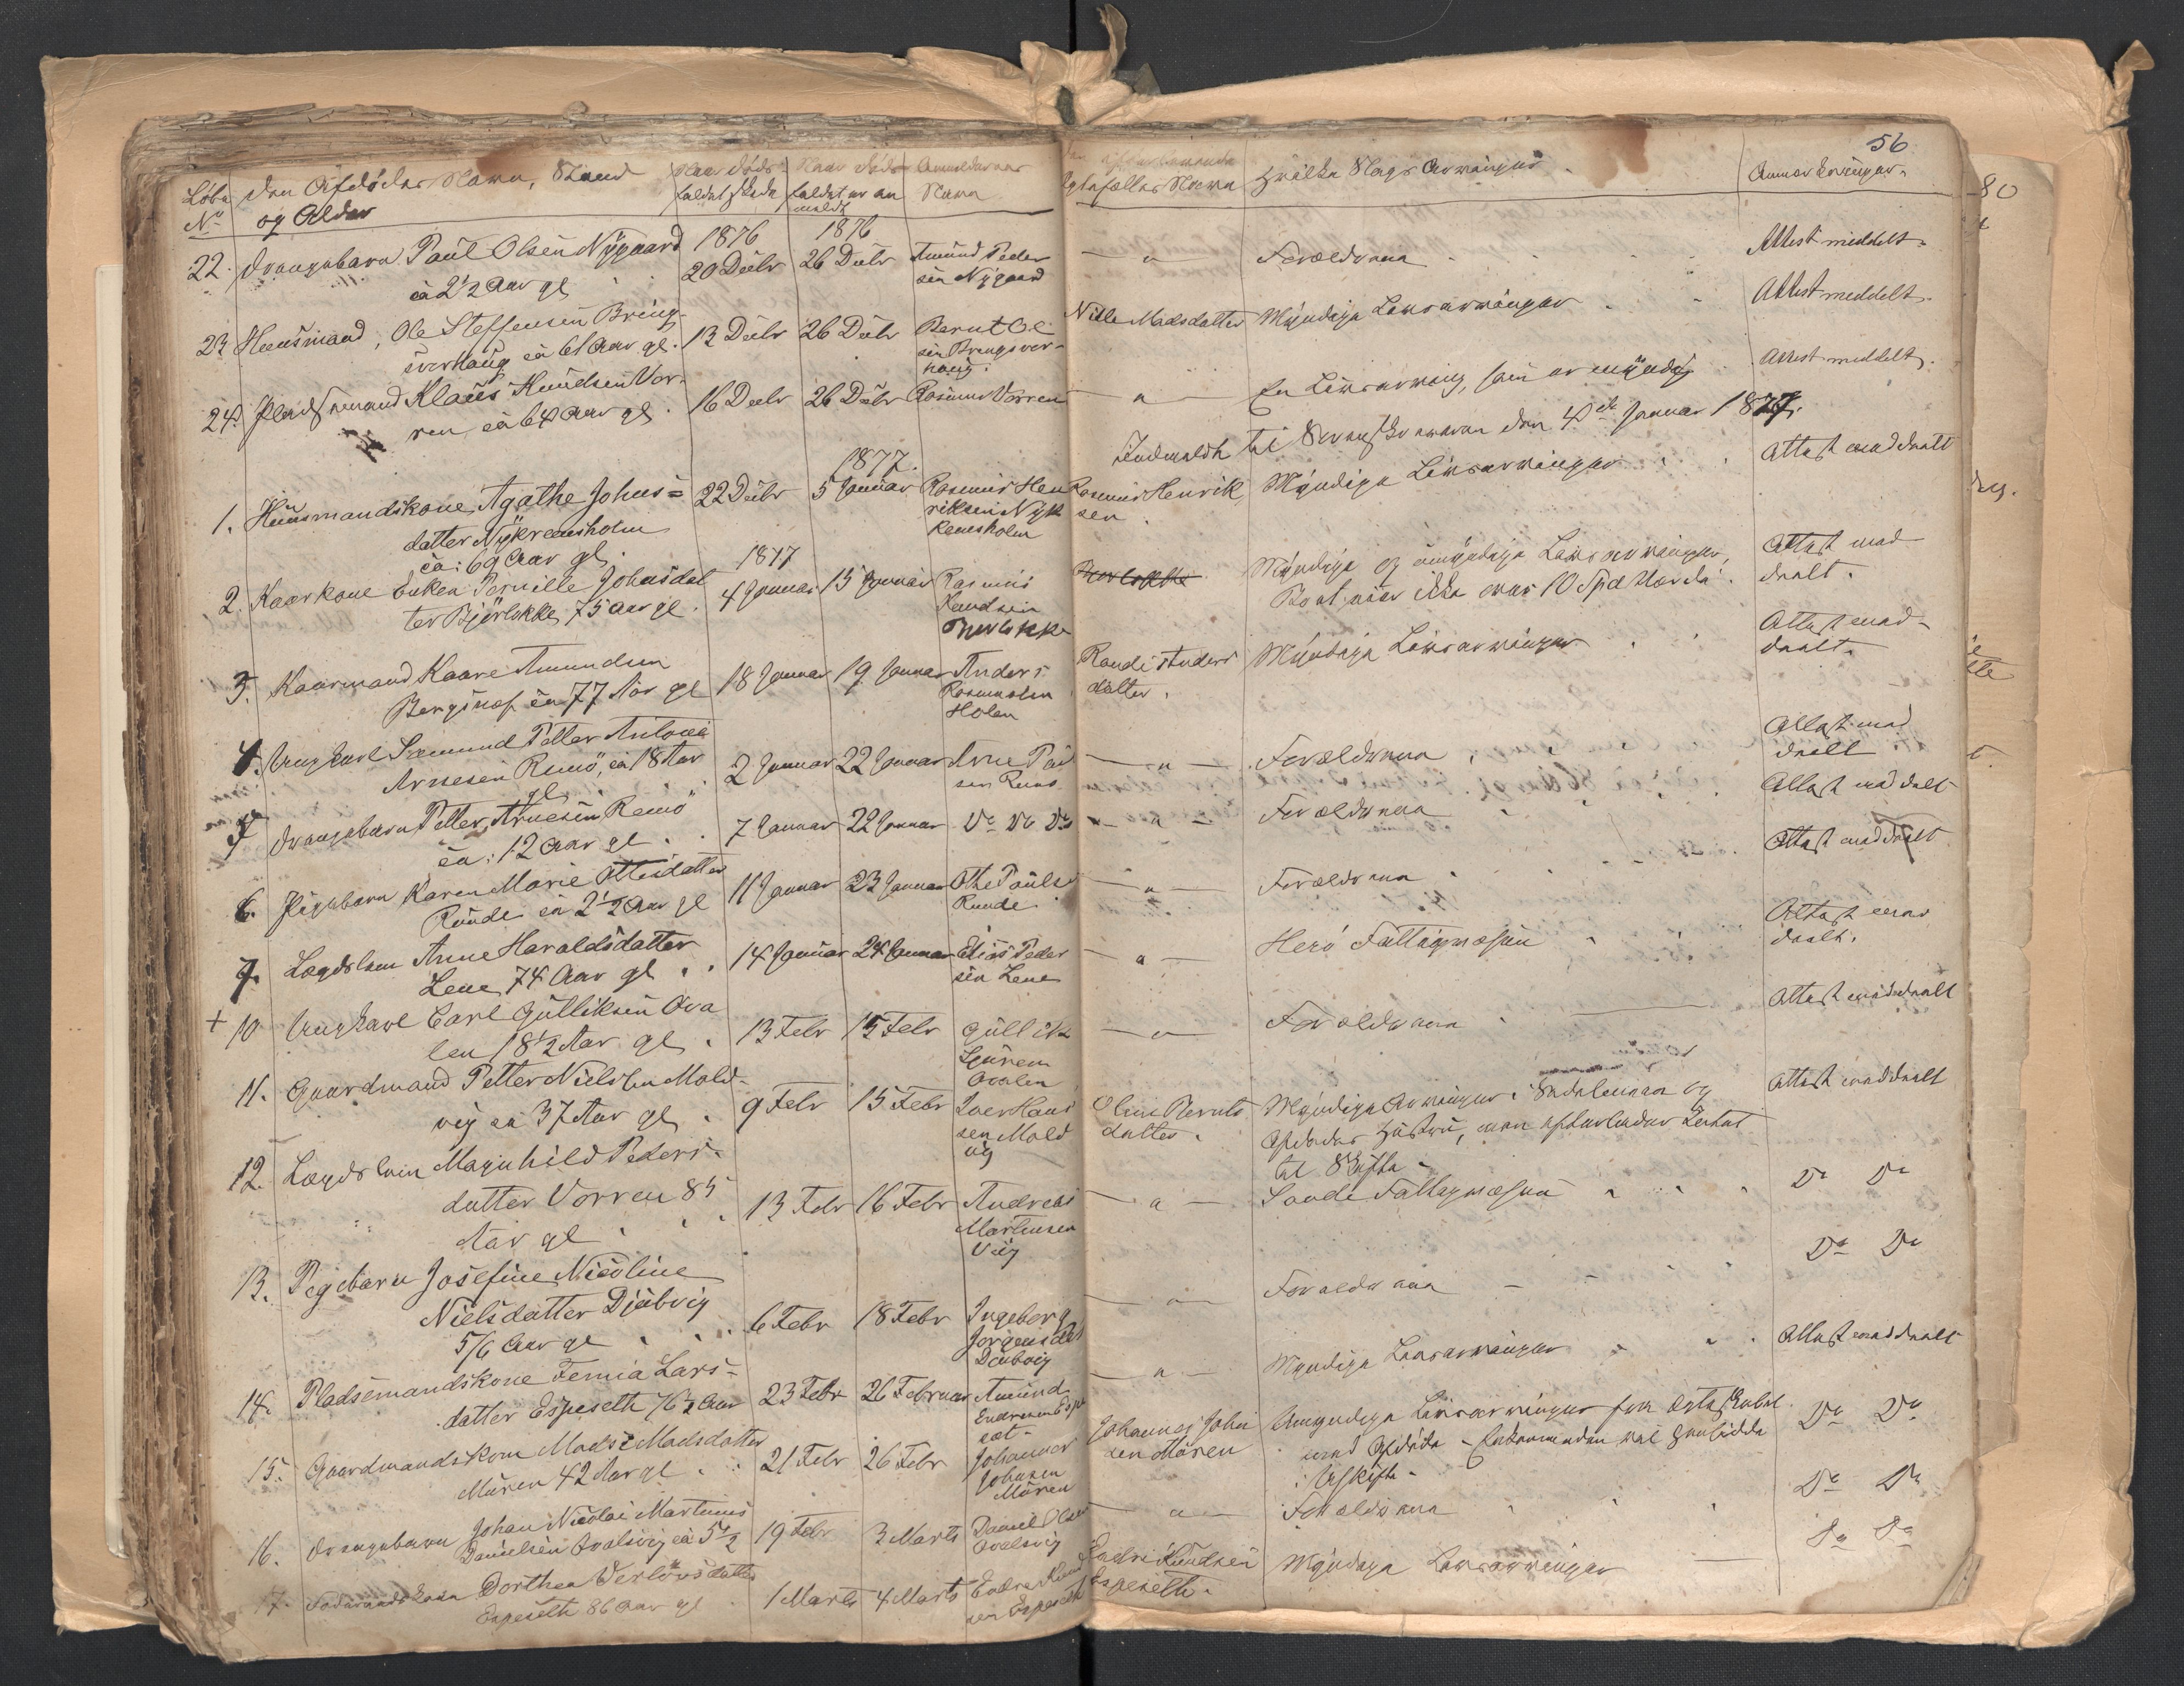 56
Løbe No
Den Afdødes Navn, Stand og Alder
Naar Døds-faldet skede
Naar Døds-faldet er an meldt
Anmelderens Navn
Den efterlevende Egtefælles Navn
Hvilke Slags Arvinger
Anmærkninger
22. Drengebarn Paul Olsen Nygaard
ca 2 1/2 Aar gl
1876
20 Decbr
1876
26 Decbr
Amund Peder
sen Nygaard
— " —
Forældrene
Attest meddelt.
23 Huusmand, Ole Steffensen Bring-
sverhaug ca 61 Aar gl.
13 Decbr
26 Decbr
Bernt Ol
sen Bringsver-
haug.
Nille Madsdatter
Myndige Livsarvinger
Attest meddelt.
24. Pladsmand Klaus Knudsen Vor-
ren, ca 64 Aar gl.
16 Decbr
26 Decbr
Rasmus Vorren
— " —
En Livsarving, som er myndig
Attest meddelt.
Indmeldt til Sorenskriveren den 4de Januar 1877.
1. Huusmandskone, Agathe Johns=
datter Nykremsholm
ca: 69 Aar gl.
22 Decbr
1877.
5 Januar
Rasmus Hen
riksen Nyk
remsholm
Rasmus Henrik
sen.
Myndige Livsarvinger
Attest meddeelt
2. Kaarkone Enken Pernille Johnsdat
ter Bjørlokke, 75 Aar gl.
1877
4 Januar
15 Januar
Rasmus
Knudsen
Bjørlokke
Myndige og umyndige Livsarvinger,
Boet, naar ikke over 10 Spd Værdi.
Attest med
deelt.
3. Kaarmand Kaare Amundsen
Bergsnes ca 77 Aar gl
18 Januar
19 Januar
Anders
Rasmussen
Holen
Randi Anders
datter.
Myndige Livsarvinger
Attest med-
deelt.
4. Ungkarl Semund Petter Antonie
Arnesen Remø, ca 18 Aar
gl
2 Januar
22 Januar
Arne Paul
sen Remø
— " —
Forældrene
Attest med
deelt
5 Drengebarn Petter Arnesen Remø
ca: 12 Aar gl.
7 Januar
22 Januar
Do Do Do
— " —
Forældrene
Attest meddelt
6. Pigebarn Karen Marie Ottesdatter
Runde ca 2 1/2 Aar gl
11 Januar
23 Januar
Othe Pauls
Runde
— " —
Forældrene
Attest meddeelt
7. Lægdslem Anne Haraldsdatter
Lene, 74 Aar gl
14 Januar
24 Januar
Elias Peder
sen Lene
— " —
Herø Fattigvæsen
Attest med
deelt.
+ 10 Ungkarl Carl Gulliksen Ova
len 18 1/2 Aar gl.
13 Febr
15 Febr
Gullik
Ovalen
— " —
Forældrene
Attest meddeelt
11. Gaardmand Petter Nielssen Mold-
vig ca 37 Aar gl.
9 Febr
15 Febr
Iver Hans
sen Mold
vig
Oline Bernts
datter.
Myndige Arvinger: Sødskende og
Afdødes Hustru, men efterlader Intet
til Skifte -
Attest meddeelt
12. Lægdslem Magnhild Peders-
datter Vorren 85
Aar gl
13 Febr
16 Febr
Andreas
Martinsen
Vig
— " —
Sande Fattigvæsen
Do Do
13. Pigebarn Josefine Nicoline
Nielsdatter Djubvig
5/6 Aar gl
6 Febr
18 Febr
Ingeborg
Jørgensdat
Djubvig
— " —
Forældrene
Do Do
14. Pladsemandskone Femia Lars-
datter Espeseth 76 1/2 Aar
23 Febr
26 Februar
Amund
Endresen Espe
set-
— " —
Myndige Livsarvinger
Attest meddeelt
15. Gaardmandskone Madsi Madsdatter
Mören 42 Aar gl
21 Febr
26 Febr
Johannes
Johnsen
Mören
Johannes John
sen Mören
Umyndige Livsarvinger fra Egteskabet
med Afdøde - Enkemanden vil hensidde
i Uskifte -
Do Do
16. Drengebarn Johan Nicolai Martinus
Danielsen Kvalsvig ca 5 1/2
19 Febr
3 Marts
Daniel Olsen
Kvalsvig
— " —
Forældrene
Do Do
17. Føderaadskone Dorthea Verlovsdatter
Espeseth 86 Aar gl
1 Marts
4 Marts
Endre Knud
sen Espeseth
Endre Knudsen
Espeseth.
Myndige Livsarvinger
Do Do